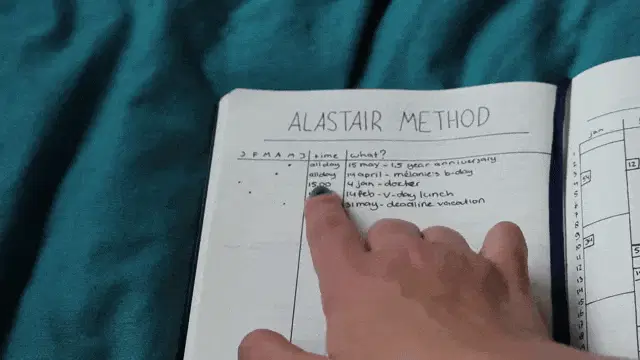 ALASTAIR METHOD
J F M A M J time what?
all day 15 may - 1.5 year anniversary
all day 19 april - mélanie's b-day
15:00 4 jan - docter
14 feb - v-day lunch
31 may - deadline vacation
jan
1
2
3
4
5
6
7
8
9
10
11
12
13
14
15
12